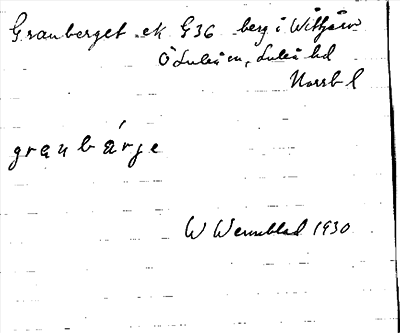 Granberget ek G36 berg i Vittjärv
Ö Luleå sn, Luleå hd
Norrb l
granbárje
W Wennblad 1930